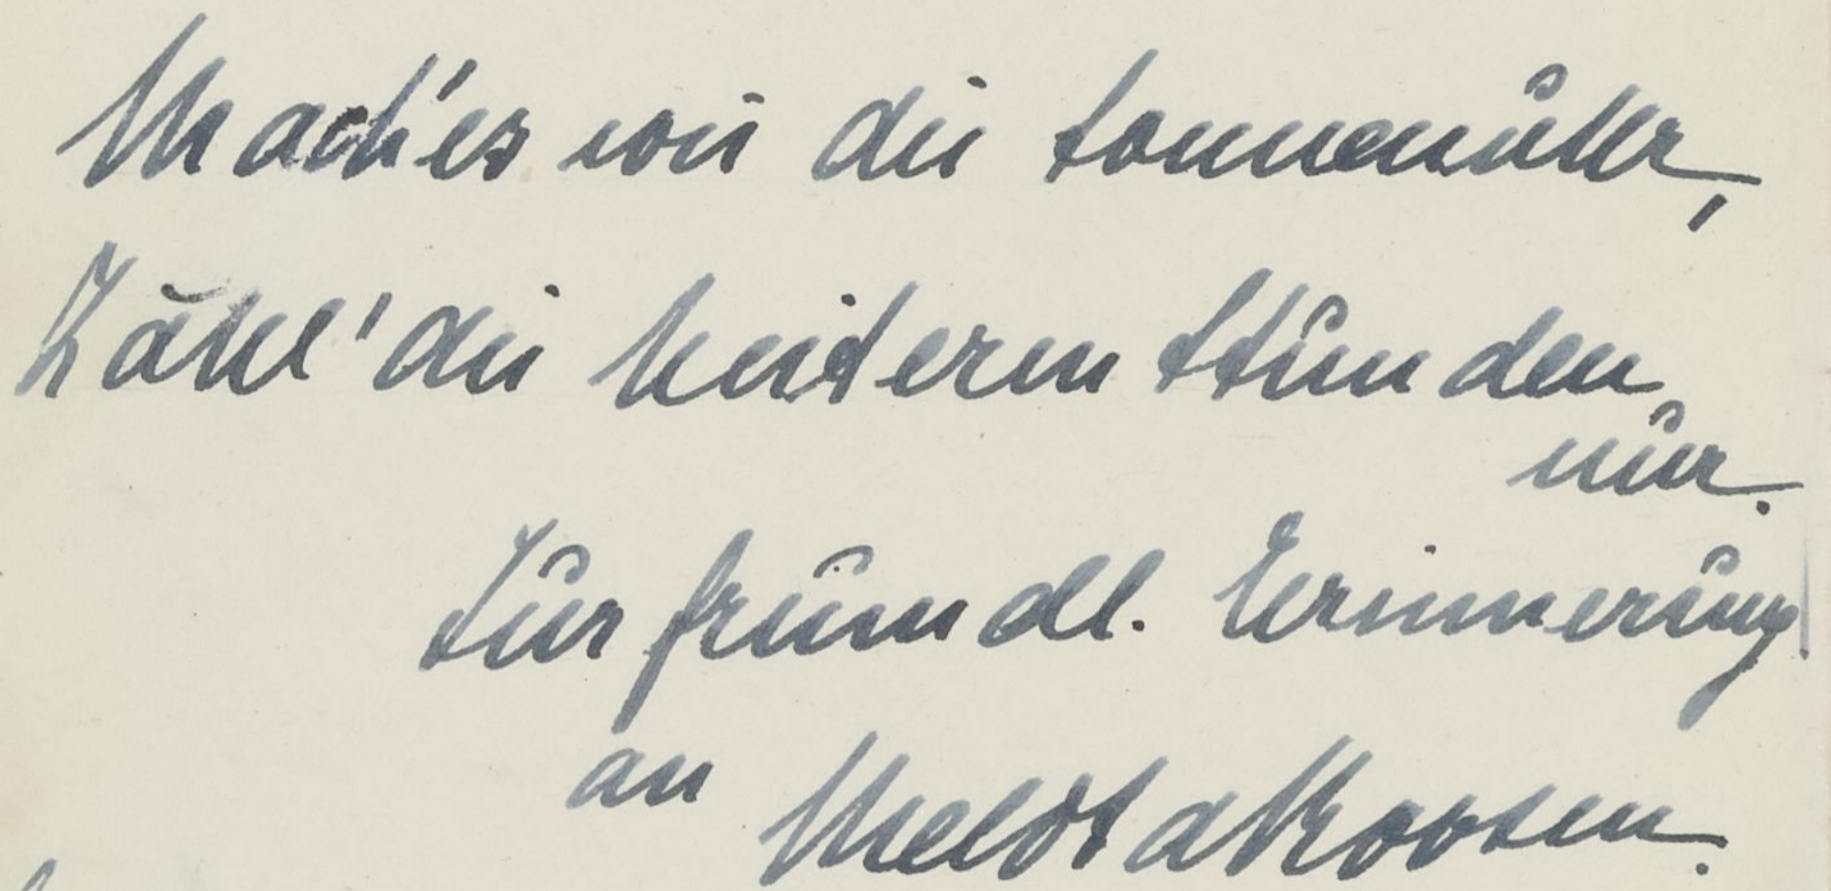 Mach'es wie die Sonnenuhr,
Zähl' die heiteren Stunden
nur.
Zur freundl. Erinnerung
an